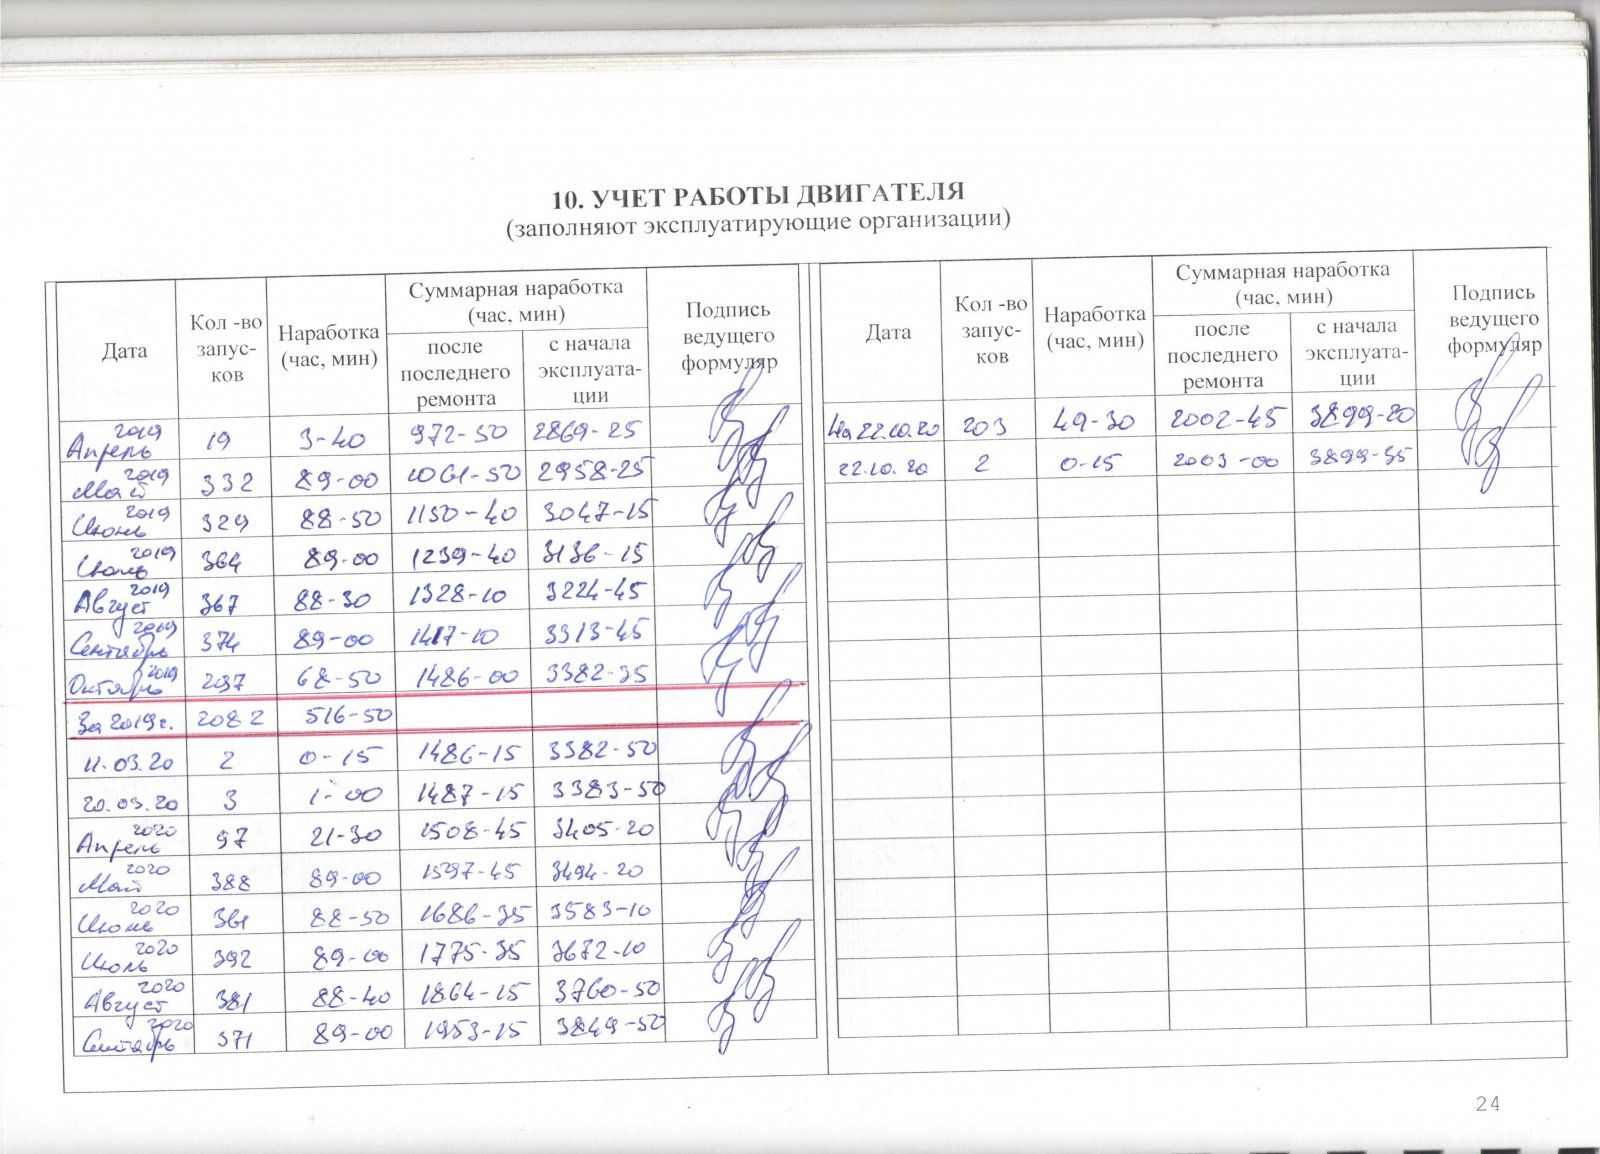 10. УЧЕТ РАБОТЫ ДВИГАТЕЛЯ
(заполняют эксплуатирующие организации)
Дата | Кол -во запус-ков | Наработка (час, мин) | Суммарная наработка (час, мин) | Подпись ведущего формуляр
после последнего ремонта | с начала эксплуата-ции
Апрель 2019 19 3-40 972-50 2869-25
Май 2019 332 89-00 1061-50 2958-25
Июнь 2019 329 88-50 1150-40 3047-15
Июль 2019 364 89-00 1239-40 3136-15
Август 2019 367 88-30 1328-10 3224-45
Сентябрь 2019 374 89-00 1417-10 3313-45
Октябрь 2019 297 68-50 1486-00 3382-35
За 2019г. 2082 516-50
11.03.20 2 0-15 1486-15 3382-50
20.03.20 3 1-00 1487-15 3383-50
Апрель 2020 97 21-30 1508-45 3405-20
Май 2020 388 89-00 1597-45 3494-20
Июнь 2020 361 88-50 1686-35 3583-10
Июль 2020 392 89-00 1775-35 3672-10
Август 2020 381 88-40 1864-15 3760-50
Сентябрь 2020 371 89-00 1953-15 3849-50
Дата | Кол -во запус-ков | Наработка (час, мин) | Суммарная наработка (час, мин) | Подпись ведущего формуляр
после последнего ремонта | с начала эксплуата-ции
На 22.10.20 203 49-30 2002-45 3899-20
22.10.20 2 0-15 2003-00 3899-35
24